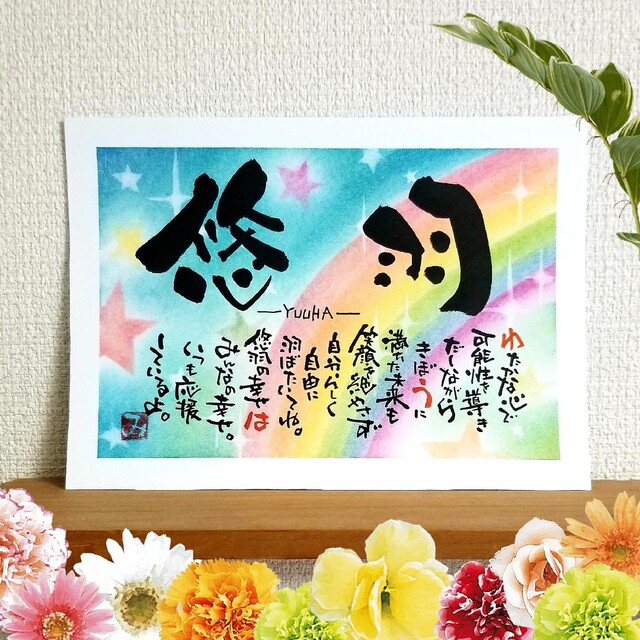 悠羽
—YUUHA—
ゆたかな心で
可能性を導き
だしながら
きぼうに
満ちた未来も
笑顔を絶やさず
自分らしく
自由に
羽ばたいてね。
悠羽の幸せは
みんなの幸せ。
いつも応援
しているよ。